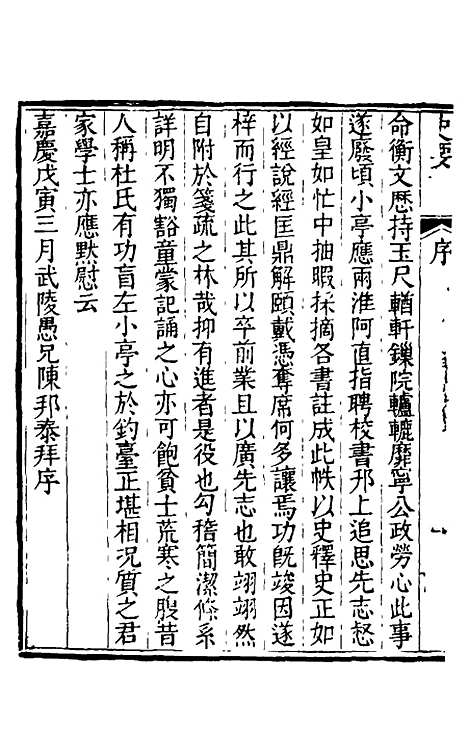 史要
序
命衡文歷持玉尺輶軒鏁院轤轆靡寧公政勞心此事
遂廢頃小亭應兩淮阿直指聘校書邗上追思先志惄
如皇如忙中抽暇採摘各書註成此帙以史釋史正如
以經說經匡鼎解頤戴憑奪席何多讓焉功旣竣因遂
梓而行之此其所以卒前業且以廣先志也敢翊翊然
自附於箋疏之林哉抑有進者是役也勾稽簡潔條系
詳明不獨豁童蒙記誦之心亦可飽貧士荒寒之腹昔
人稱杜氏有功盲左小亭之於鈞臺正堪相況質之君
家學士亦應默慰云
嘉慶戊寅三月武陵愚兄陳邦泰拜序